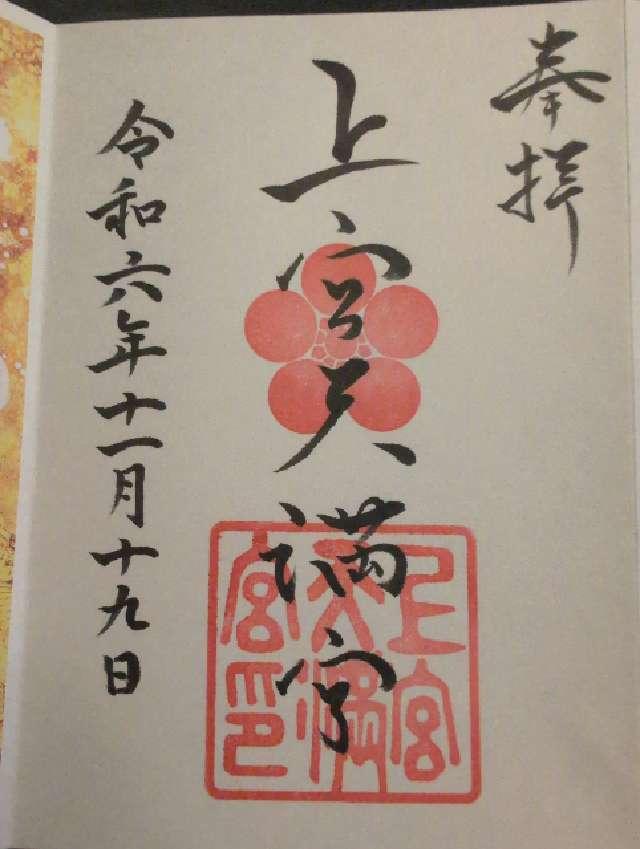 奉拝
上宮天満宮
上宮天満宮印
令和六年十一月十九日